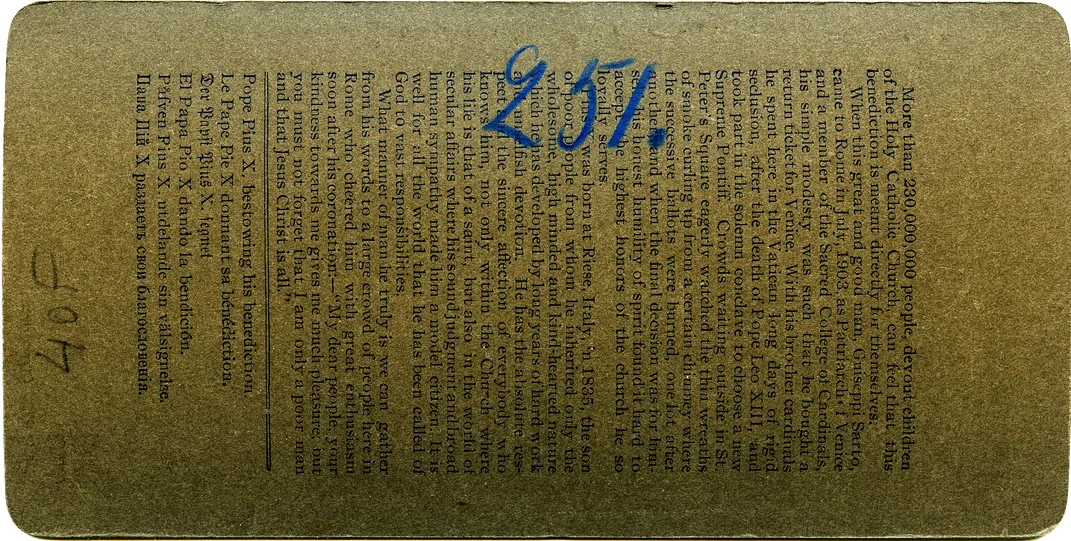 More than 230,000,000 people, devout children
of the Holy Catholic Church, can feel that this
benediction is meant directly for themselves.
When this great and good man, Guiseppi Sarto,
came to Rome in July, 1903, as Patriarch of Venice
and a member of the Sacred College of Cardinals,
his simple modesty was such that he bought a
return ticket for Venice. With his brother cardinals
he spent here in the Vatican long days of rigid
seclusion, after the death of Pope Leo XIII, and
took part in the solemn conclave to choose a new
Supreme Pontiff. Crowds waiting outside in St.
Peter's Square eagerly watched the thin wreaths
of smoke curling up from a certain chimney where
the successive ballots were burned, one lot after
another and when the final decision was for him-
self his honest humility of spirit found it hard to
accept the highest honors of the church he so
loyally serves.
was born at Riese, Italy, in 1835, the son
of poor people from whom he inherited only the
wholesome, high minded and kind-hearted nature
which he has developed by long years of hard work
devotion. He has the absolute res-
pect and the sincere affection of everybody who
knows him, not only within the Church where
his life is that of a saint, but also in the world of
secular affairs where his sound judgment and broad
human sympathy made him a model citizen. It is
well for all the world that he has been called of
God to vast responsibilities.
What manner of man he truly is we can gather
from his words to a large crowd of people here in
Rome who cheered him with great enthusiasm
soon after his coronation—"My dear people, your
kindness towards me gives me much pleasure, but
you must not forget that I am only a poor man
and that Jesus Christ is all."
Pope Pius X, bestowing his benediction.
Le Pape Pie X donnant sa bénédiction.
Der Papst Pius X. segnet
El Papa Pio X dando la bendición.
Påfven Pius X, utdelande sin välsignelse.
Папа Пій X раздаетъ свои благословенія.
251.
40F